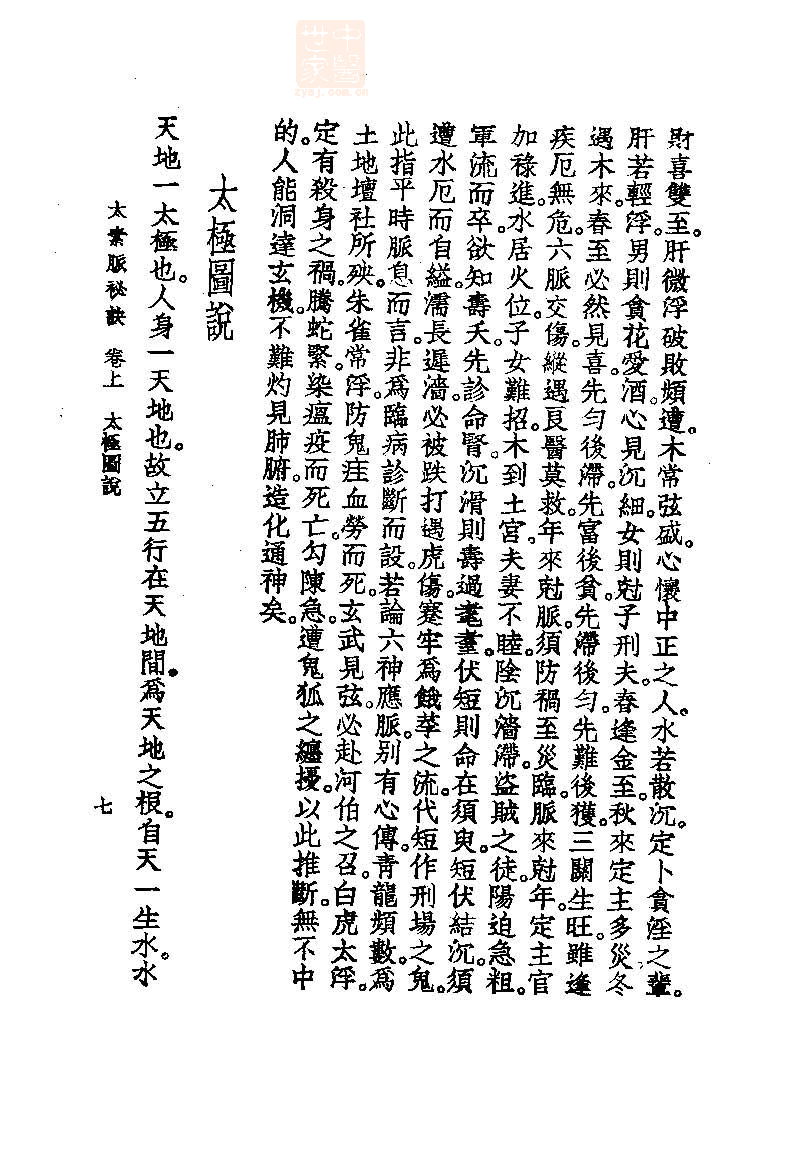 中醫世家
zysj.com.cn
財喜雙至。肝微浮破敗頻遭。木常弦盛。心懷中正之人。水若散沉。定卜貪淫之輩。
肝若輕浮。男則貪花愛酒。心見沉細。女則尅子刑夫。春逢金至。秋來定主多災。冬
遇木來。春至必然見喜。先勻後滯。先富後貧。先滯後勻。先難後獲。三關生旺。雖逢
疾厄無危。六脈交傷。縱遇良醫莫救。年來尅脈。須防禍至災臨。脈來尅年。定主官
加祿進。水居火位。子女難招。木到土宮。夫妻不睦。陰沉濇滯。盜賊之徒。陽迫急粗。
軍流而卒。欲知壽夭。先診命腎。沉滑則壽過耄耋。伏短則命在須臾。短伏結沉。須
遭水厄而自縊。濡長遲濇。必被跌打遇虎傷。蹇牢爲餓莩之流。代短作刑場之鬼。
此指平時脈息而言。非爲臨病診斷而設。若論六神應脈。別有心傳。青龍頻數。爲
土地壇社所殃。朱雀常浮。防鬼疰血勞而死。玄武見弦。必赴河伯之召。白虎太浮。
定有殺身之禍。騰蛇緊。染瘟疫而死亡。勾陳急。遭鬼狐之纏擾。以此推斷。無不中
的。人能洞達玄機。不難灼見肺腑。造化通神矣。
太極圖說
天地一太極也。人身一天地也。故立五行在天地間。爲天地之根。自天一生水。水
太素脈祕訣 卷上 太極圖說
七